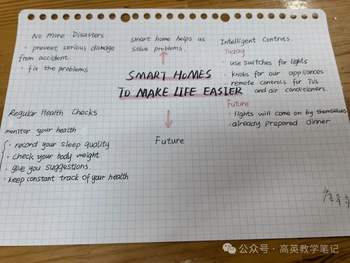 No More Disasters
· prevent serious damage
from accident
· fix the problems
smart home helps us
solve problems
Intelligent Controls
Today
· use switches for lights
· knobs for our appliances
· remote controls for TVs
and air conditioners.
Future
· lights will come on by themselves
· already prepared dinner
SMART HOMES
TO MAKE LIFE EASIER
Regular Health Checks
monitor your health
· record your sleep quality
· check your body weight
· give you suggestions
· keep constant track of your health
Future
公众号 · 高英教学笔记